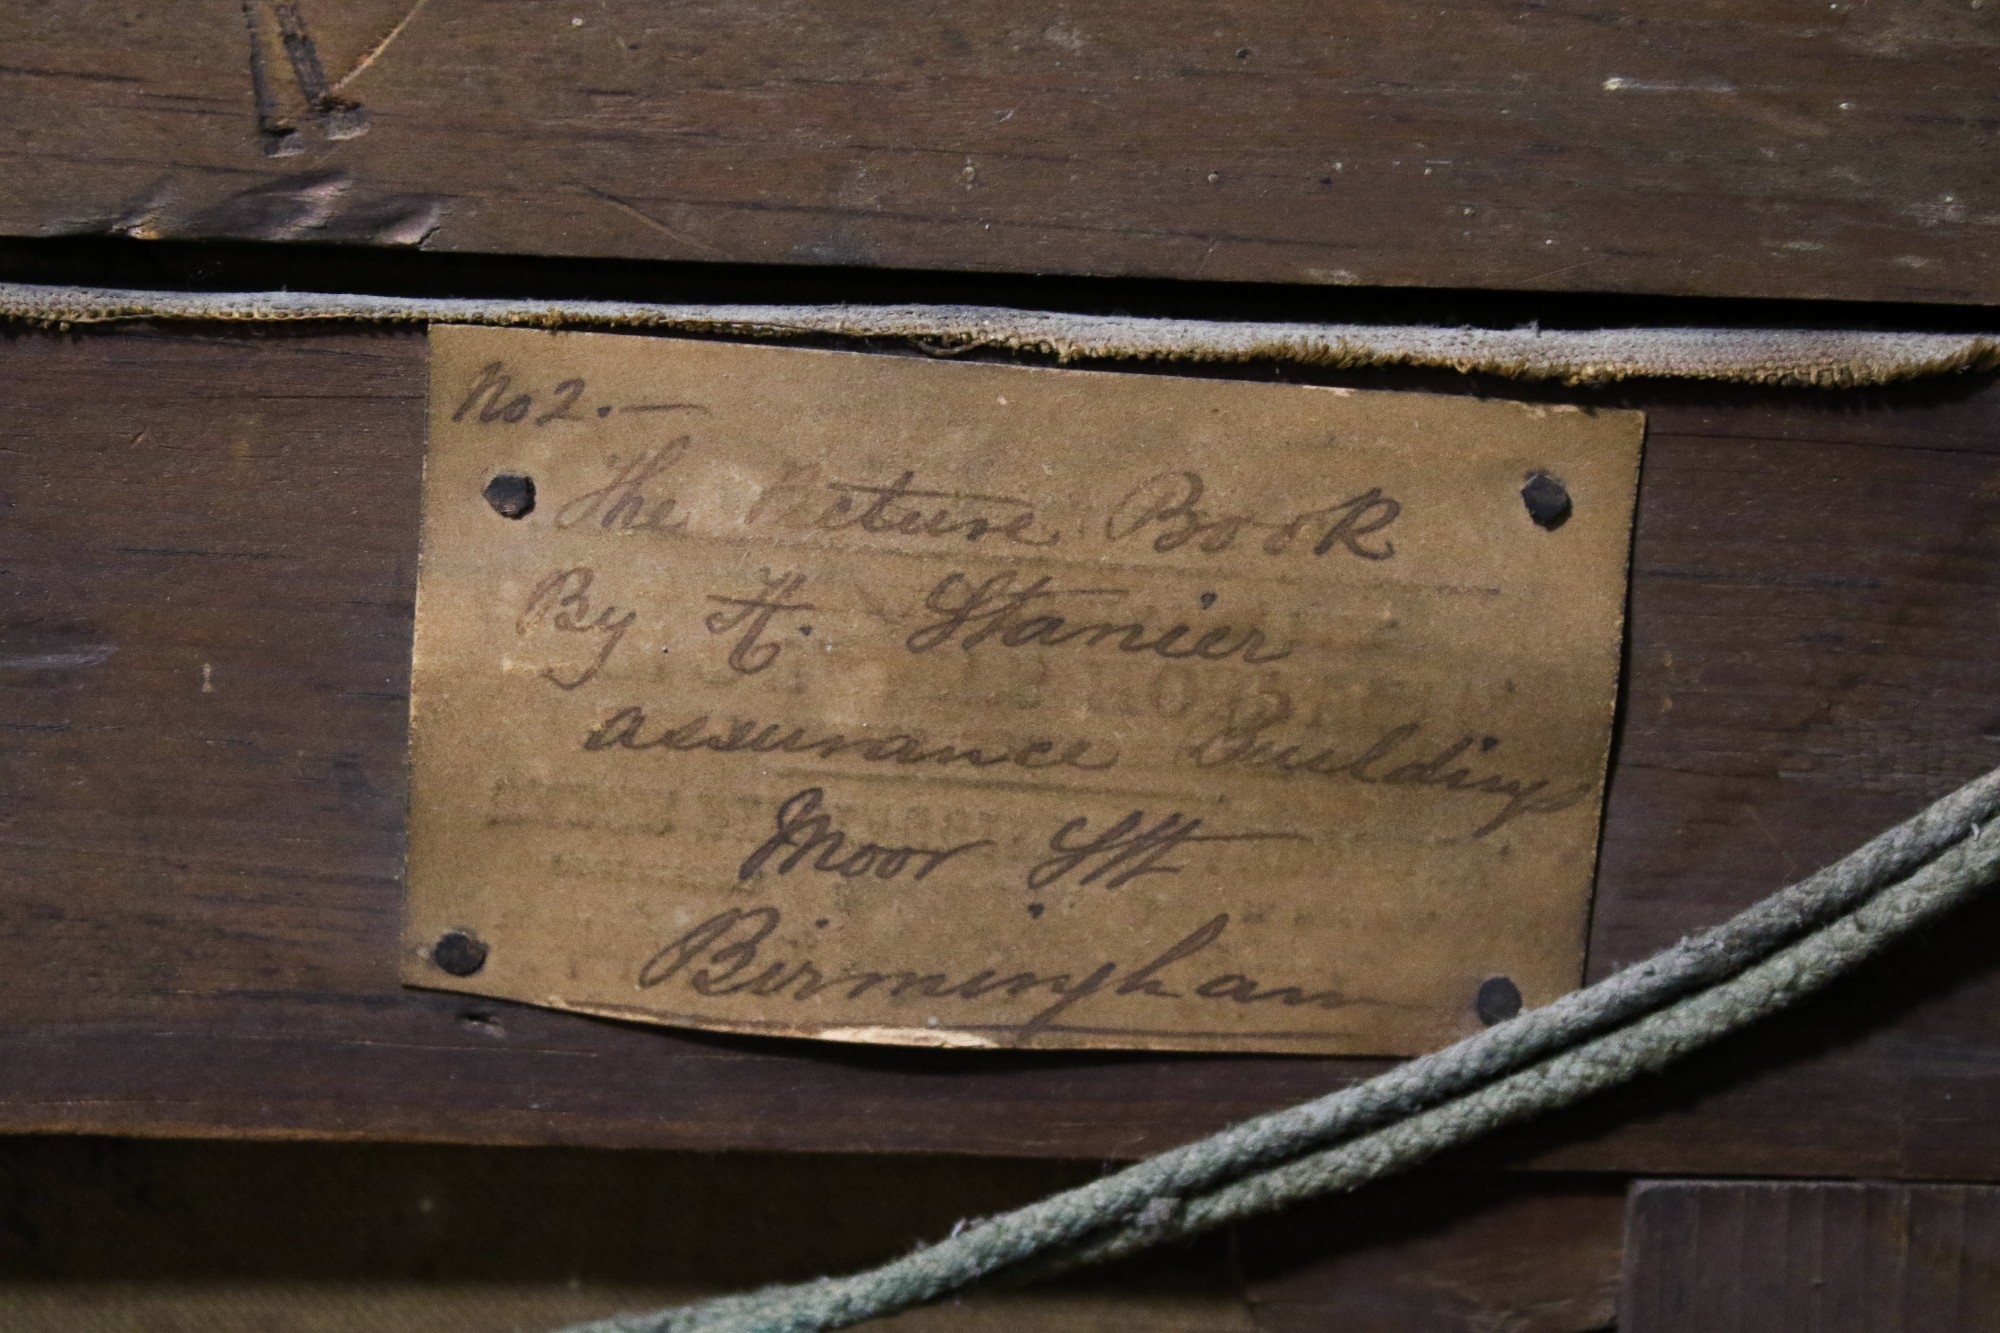 No 2. —
The Picture Book
By H. Stanier
assurance Buildings
Moor Stt
Birmingham